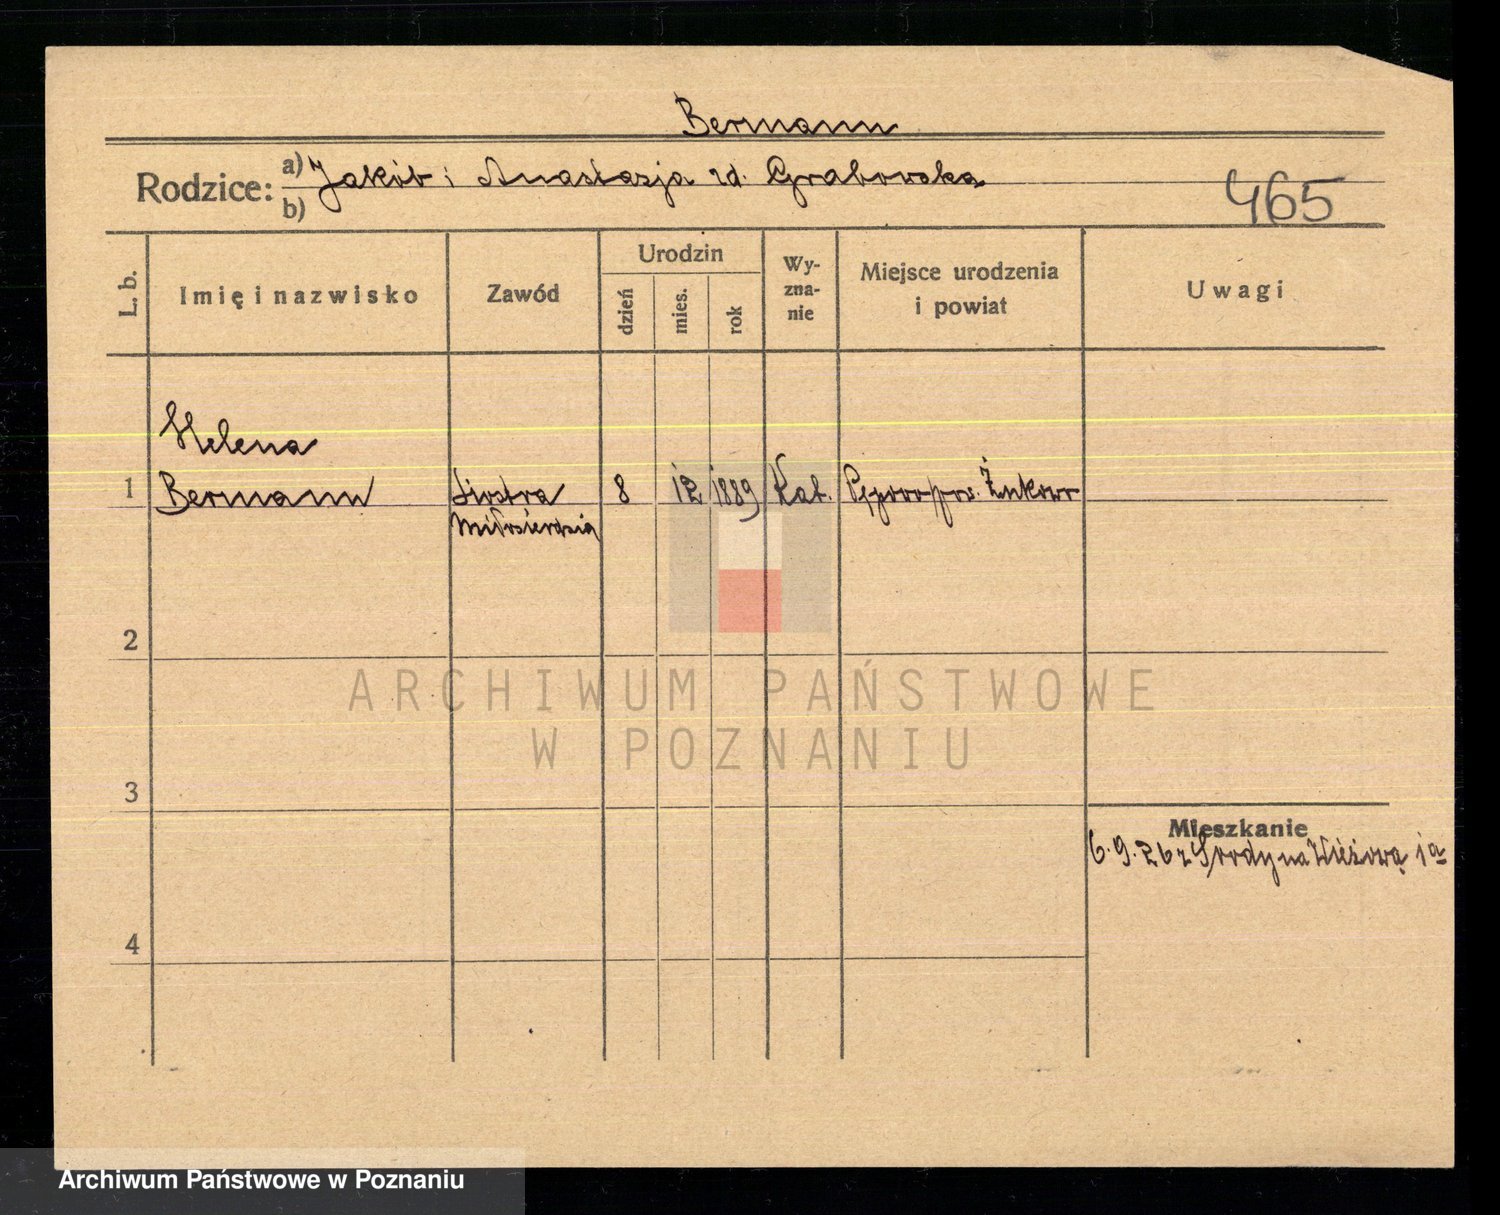 Bermann
Rodzice: a) Jakób i Anastazja rd. Grabowska
b)
465
L. b.
Imię i nazwisko
Zawód
Urodzin
dzień
mies.
rok
Wy-
zna-
nie
Miejsce urodzenia
i powiat
Uwagi
Helena
1 Bermann Siostra 8 12 1889 Kat. pow. Żnkowo
Miłosierdzia
2
ARCHIWUM PAŃSTWOWE
W POZNANIU
3
Mieszkanie
6.9.26 z Środy na Wieżową 1a
4
Archiwum Państwowe w Poznaniu